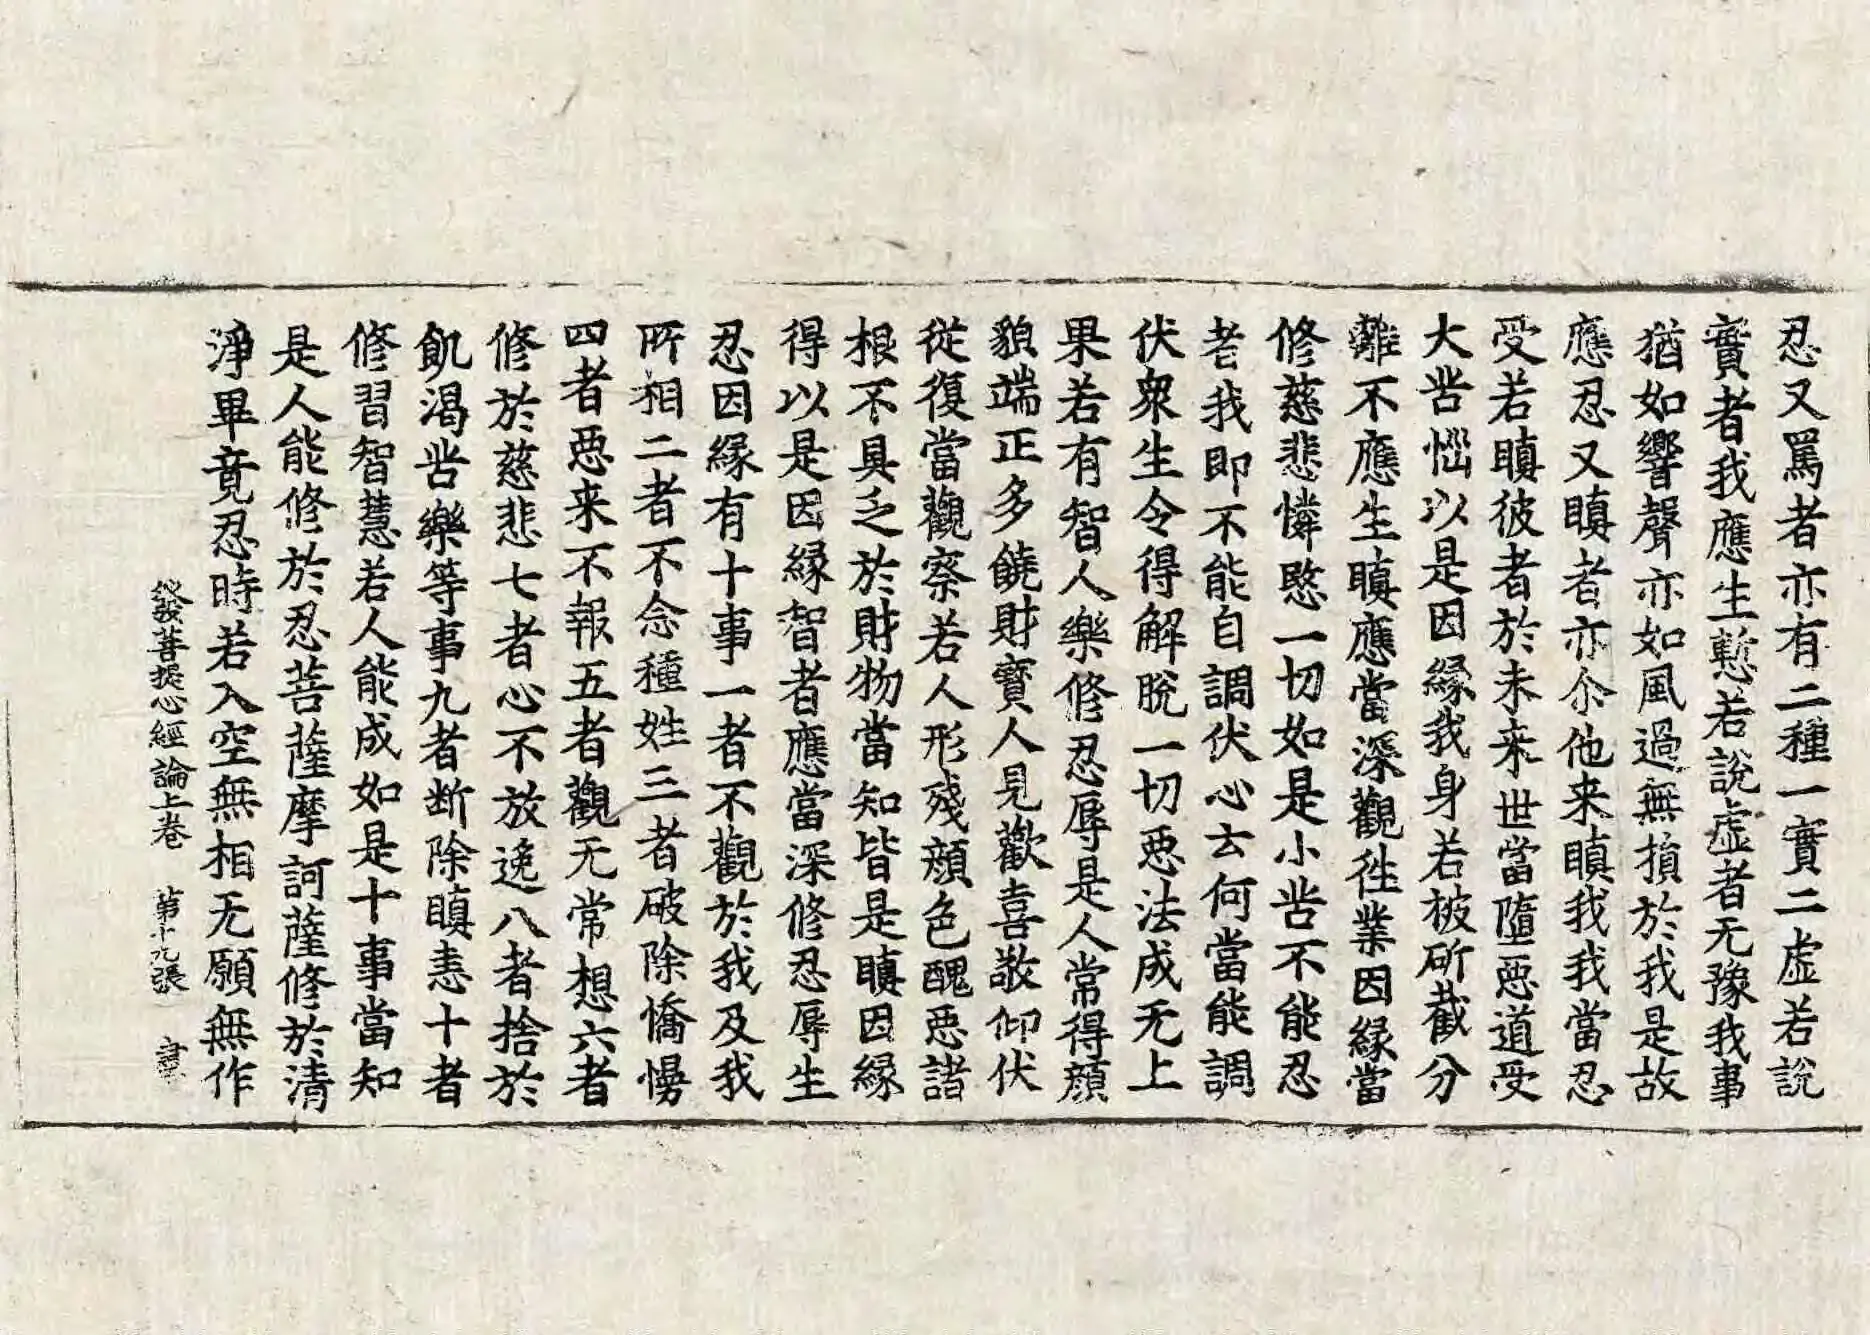 忍又罵者亦有二種一實二虛若說
實者我應生慙若說虛者无豫我事
猶如響聲亦如風過無損於我是故
應忍又瞋者亦尒他来瞋我我當忍
受若瞋彼者於未来世當墮惡道受
大苦惱以是因縁我身若被斫截分
離不應生瞋應當深觀徃業因縁當
修慈悲憐愍一切如是小苦不能忍
者我即不能自調伏心云何當能調
伏衆生令得解脫一切惡法成无上
果若有智人樂修忍辱是人常得顔
貌端正多饒財寶人見歡喜敬仰伏
從復當觀察若人形殘顔色醜惡諸
根不具乏於財物當知皆是瞋因縁
得以是因縁智者應當深修忍辱生
忍因縁有十事一者不觀於我及我
所相二者不念種姓三者破除憍慢
四者惡来不報五者觀无常想六者
修於慈悲七者心不放逸八者捨於
飢渴苦樂等事九者斷除瞋恚十者
修習智慧若人能成如是十事當知
是人能修於忍菩薩摩訶薩修於清
淨畢竟忍時若入空無相无願無作
發菩提心經論上卷　第十九張